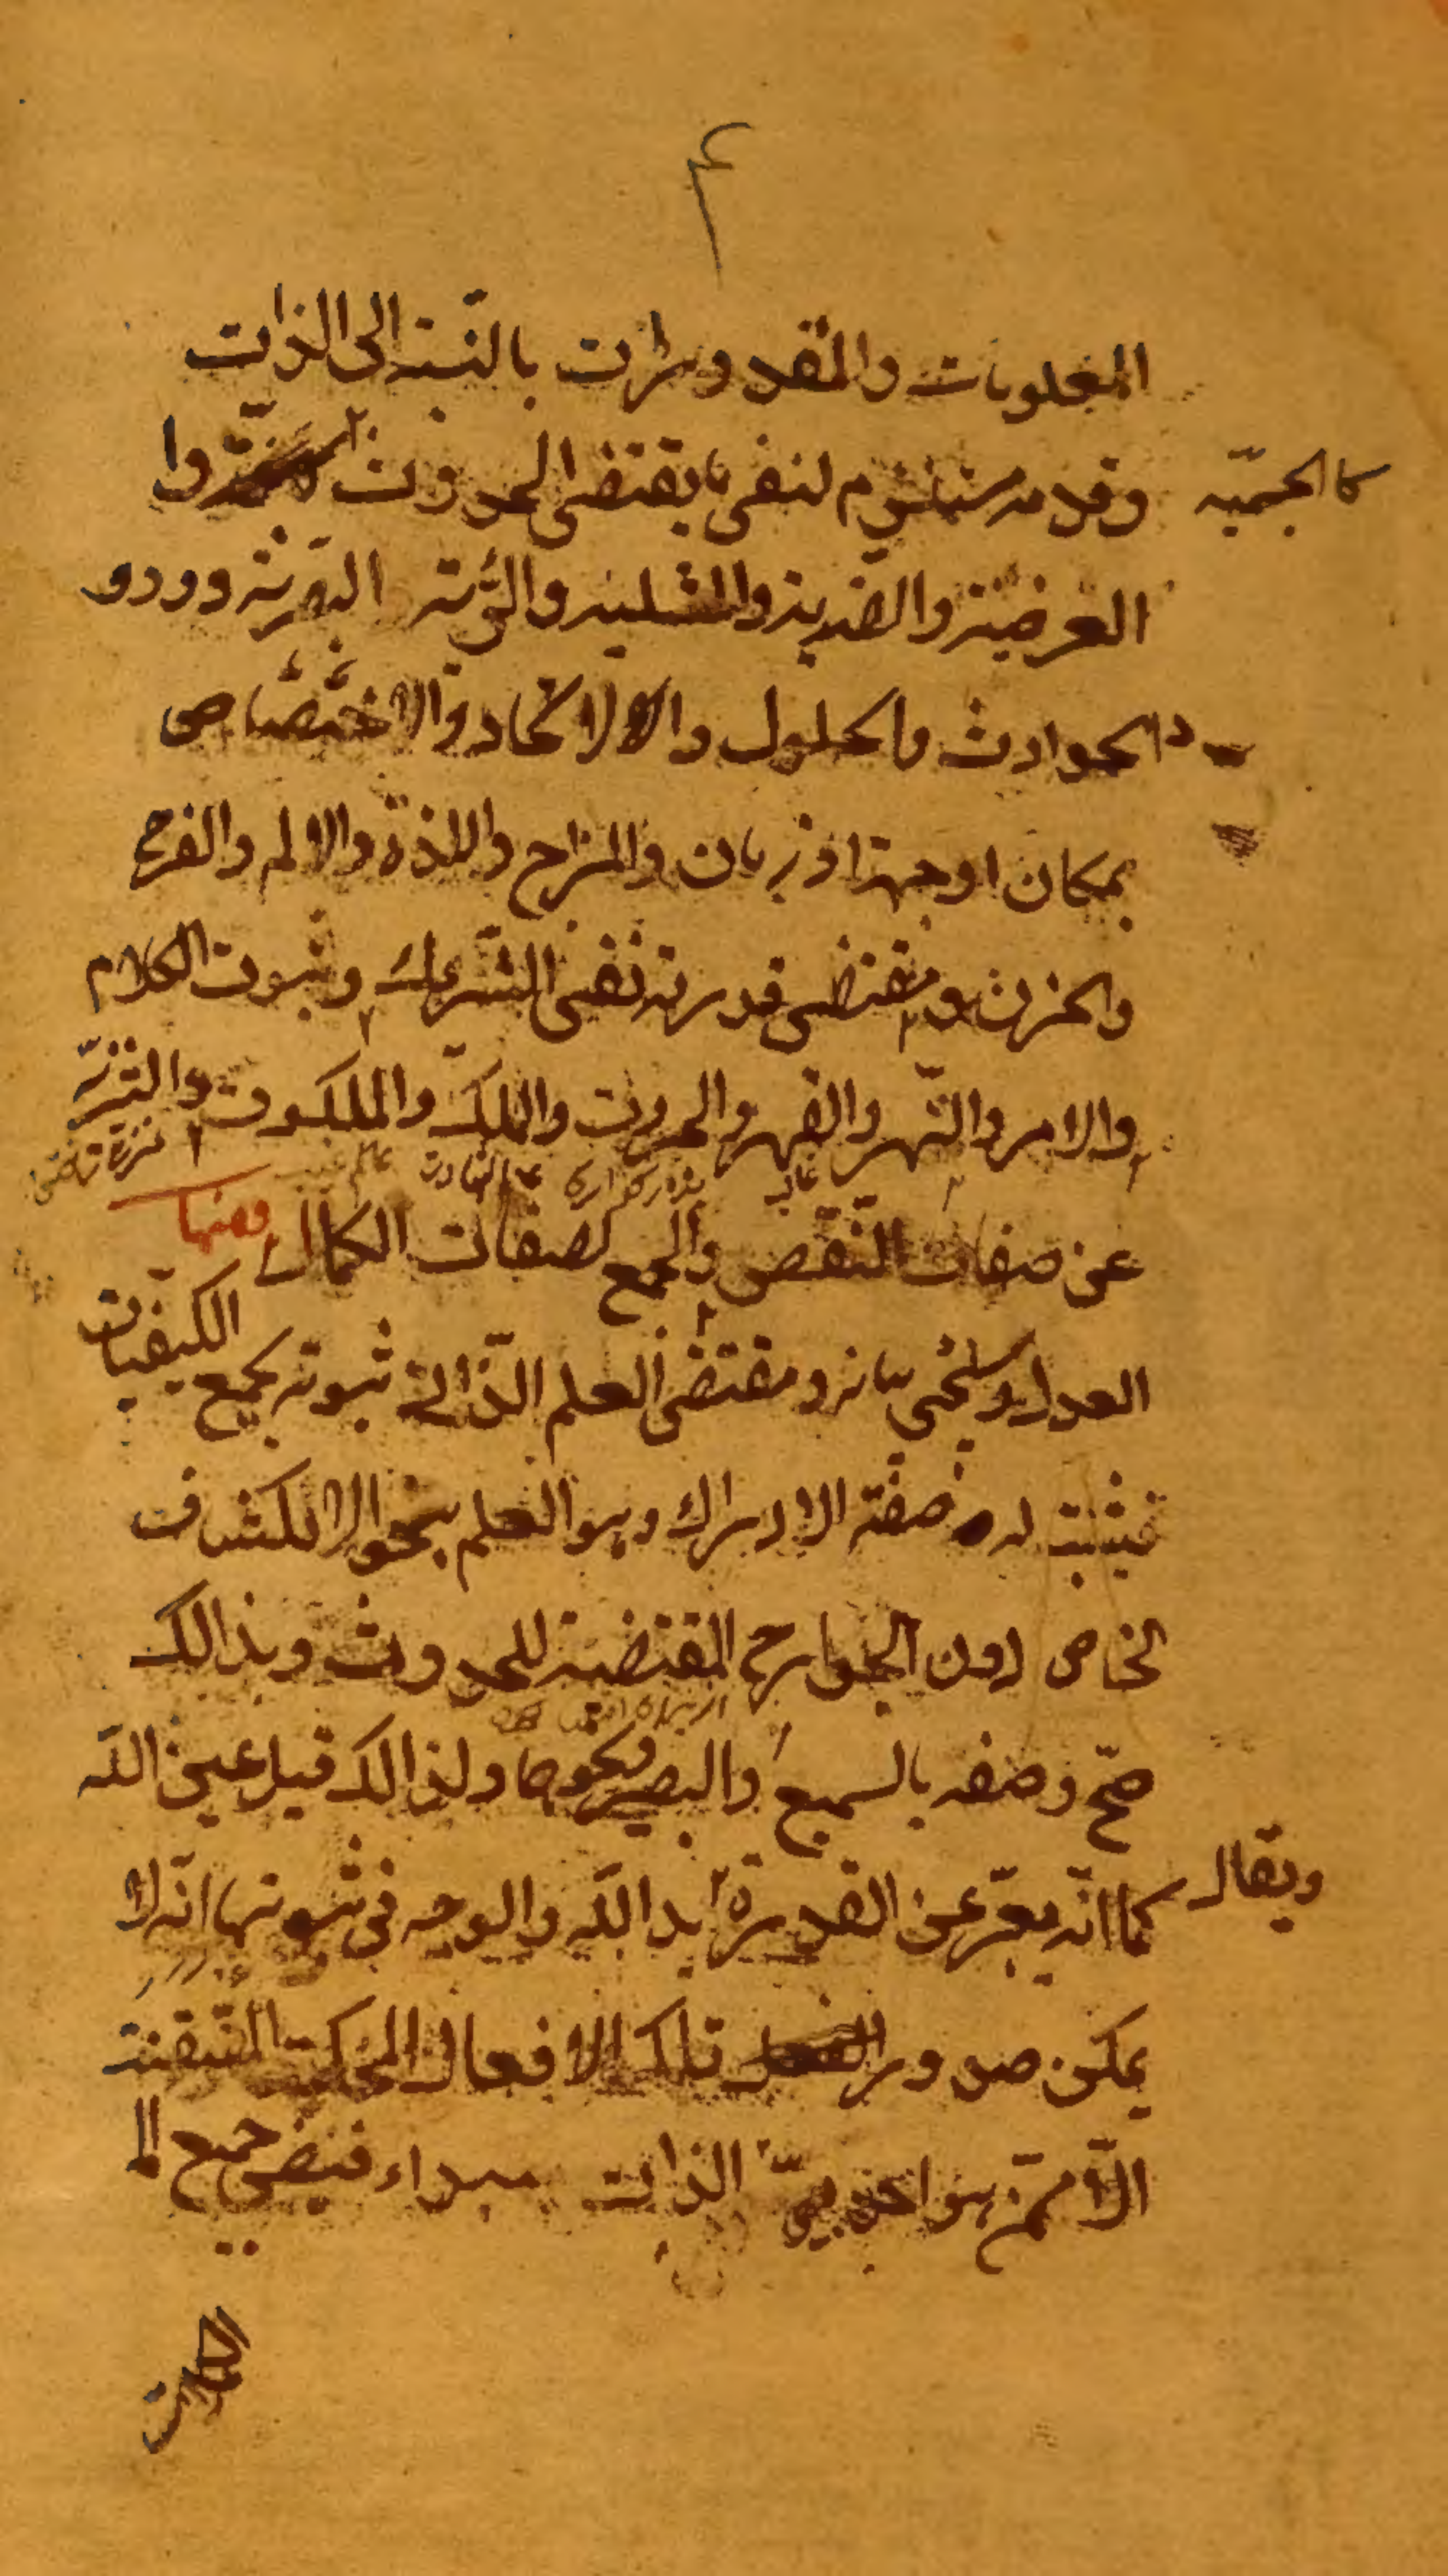 ۴
المعلومات والمقدورات بالنسبة الى الذات
كالجسميّه
وقدمه مستلزم لنفى ما يقتضى الحدوث
العرضية والضدية والمثلية والرؤية البصرية وورود
الحوادث والحلول والاتحاد والاختصاص
بمكان او جهة او زمان والمزاج واللذة والالم والفرح
والحزن ومقتضى قدرته نفى الشريك وثبوت الكلام
والامر والنهى والقهر والجبروت والملك والملكوت والتنزيه
عن صفات النقص والجمع لصفات الكمال ومنها
العدل وسيجئ بيانه ومقتضى العلم الذاتى ثبوته بجميع الكيفيات
فيثبت له صفة الادراك وهو العلم بنحو الانكشاف
الخاص دون الجوارح المقتضية للحدوث وبذالك
صحّ وصفه بالسميع والبصير ونحوهما ولذالك قيل عين اللّه
ويقال
كما انّه يعبّر عن القدرة بيد اللّه والوجه فى ثبوتها انّه لا
يمكن صدور تلك الافعال المحكمة المتقنة
الّا ممّن هو الذات مبداء فيض جميع